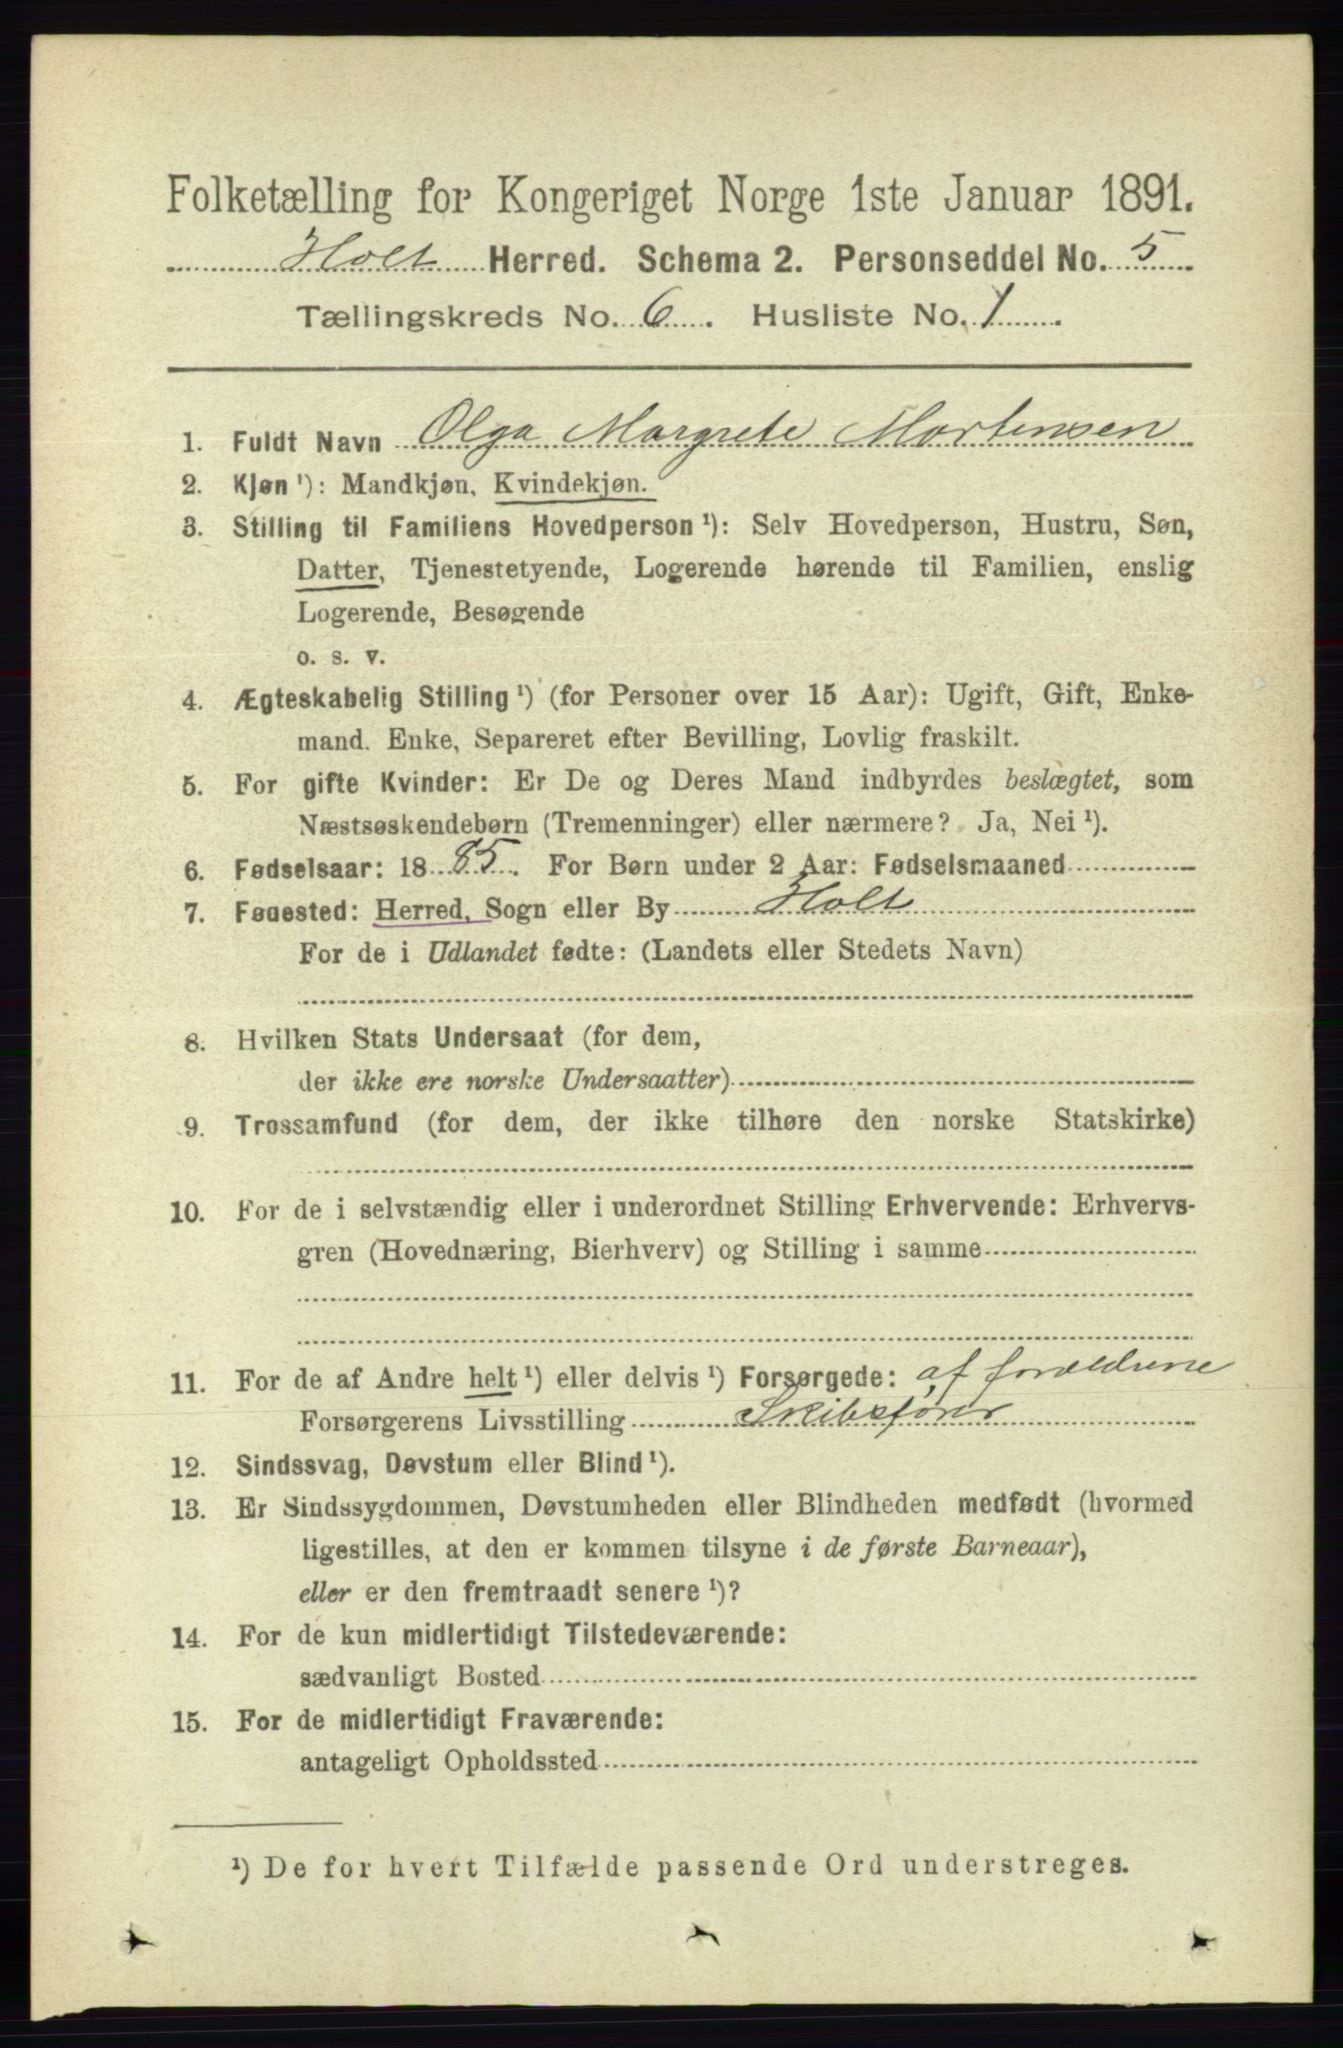 Folketælling for Kongeriget Norge 1ste Januar 1891.
Holt Herred. Schema 2. Personseddel No. 5
Tællingskreds No. 6. Husliste No. 1.
1. Fuldt Navn Olga Margrete Mortensen
2. Kjøn ¹): Mandkjøn, Kvindekjøn.
3. Stilling til Familiens Hovedperson ¹): Selv Hovedperson, Hustru, Søn,
Datter, Tjenestetyende, Logerende hørende til Familien, enslig
Logerende, Besøgende
o. s. v.
4. Ægteskabelig Stilling ¹) (for Personer over 15 Aar): Ugift, Gift, Enke-
mand. Enke, Separeret efter Bevilling, Lovlig fraskilt.
5. For gifte Kvinder: Er De og Deres Mand indbyrdes beslægtet, som
Næstsøskendebørn (Tremenninger) eller nærmere? Ja, Nei ¹).
6. Fødselsaar: 1885. For Børn under 2 Aar: Fødselsmaaned
7. Fødested: Herred, Sogn eller By Holt
For de i Udlandet fødte: (Landets eller Stedets Navn)
8. Hvilken Stats Undersaat (for dem,
der ikke ere norske Undersaatter)
9. Trossamfund (for dem, der ikke tilhøre den norske Statskirke)
10. For de i selvstændig eller i underordnet Stilling Erhvervende: Erhvervs-
gren (Hovednæring, Bierhverv) og Stilling i samme
11. For de af Andre helt ¹) eller delvis ¹) Forsørgede: af forældrene
Forsørgerens Livsstilling Skibsfører
12. Sindssvag, Døvstum eller Blind ¹).
13. Er Sindssygdommen, Døvstumheden eller Blindheden medfødt (hvormed
ligestilles, at den er kommen tilsyne i de første Barneaar),
eller er den fremtraadt senere ¹)?
14. For de kun midlertidigt Tilstedeværende:
sædvanligt Bosted
15. For de midlertidigt Fraværende:
antageligt Opholdssted
¹) De for hvert Tilfælde passende Ord understreges.